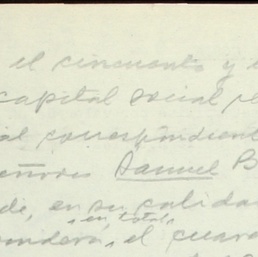 el cincuenta y
capital social
correspondient
Samuel B
de, en su calida
en total,
el cuare